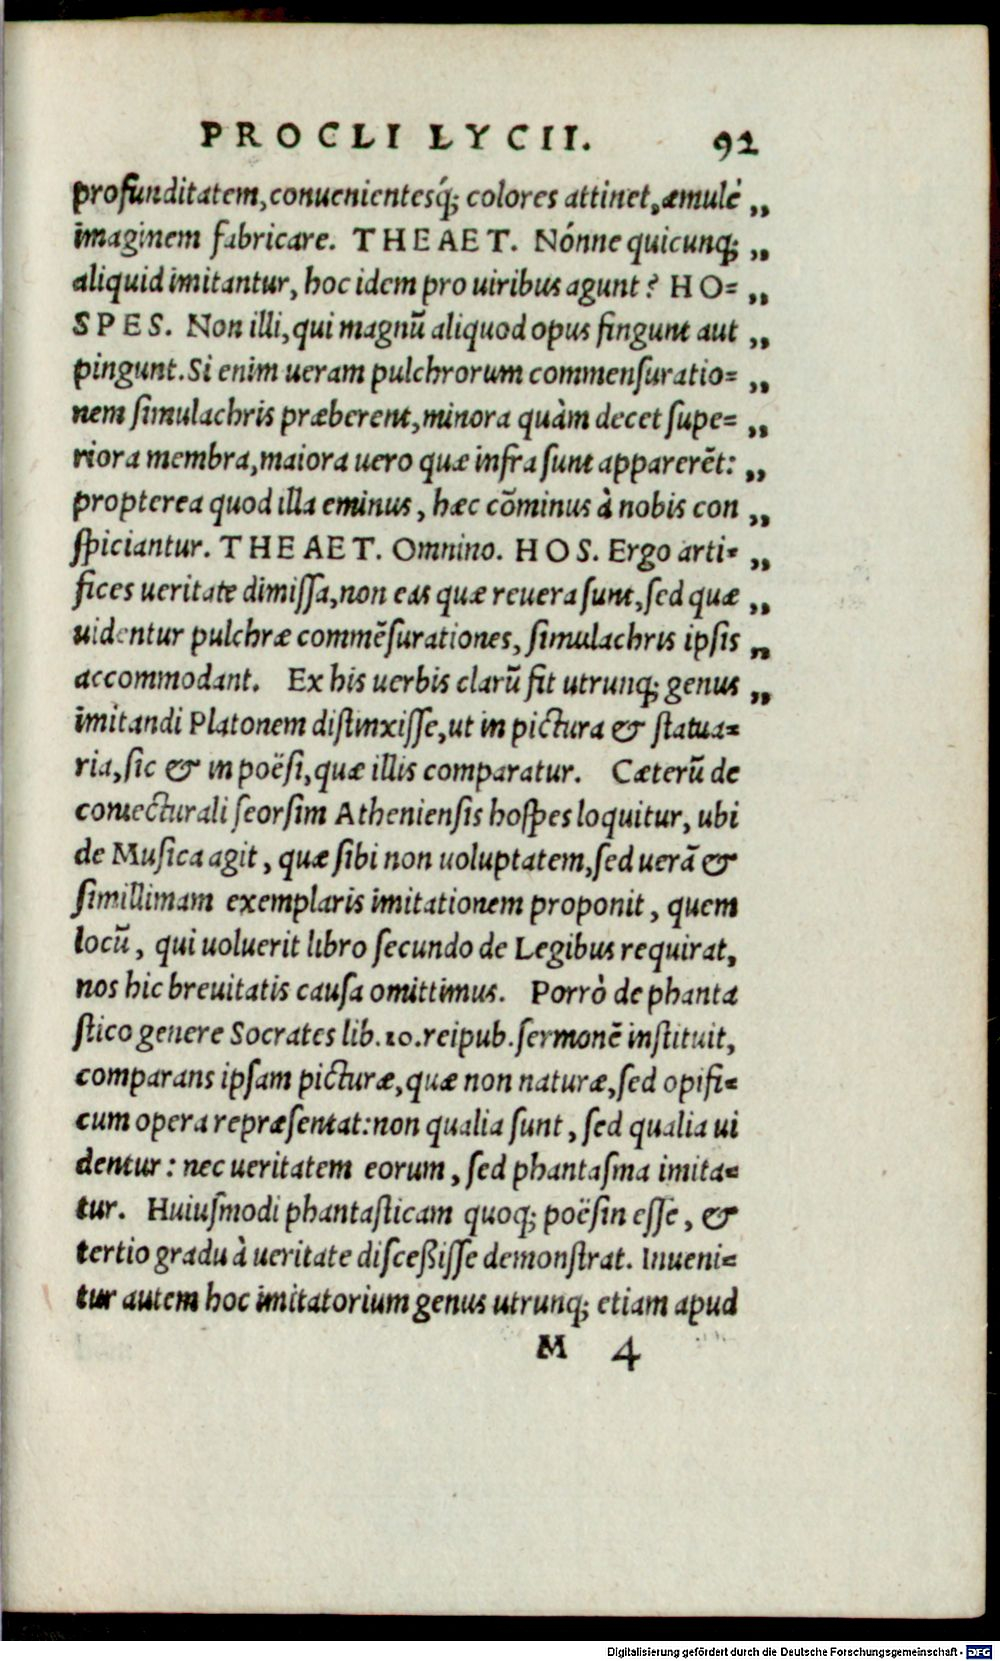 PROCLI LYCII. 92
profunditatem, conuenientesq́; colores attinet, æmulè „
imaginem fabricare. THEAET. Nónne quicunq; „
aliquid imitantur, hoc idem pro uiribus agunt? HO= „
SPES. Non illi, qui magnū aliquod opus fingunt aut „
pingunt. Si enim ueram pulchrorum commenſuratio= „
nem ſimulachris præberent, minora quàm decet ſupe= „
riora membra, maiora uero quæ infra ſunt apparerēt: „
propterea quod illa eminus, hæc cōminus à nobis con „
ſpiciantur. THEAET. Omnino. HOS. Ergo arti= „
fices ueritate dimiſſa, non eas quæ reuera ſunt, ſed quæ „
uidentur pulchræ commēſurationes, ſimulachris ipſis „
accommodant. Ex his uerbis clarū fit utrunq; genus „
imitandi Platonem diſtinxiſſe, ut in pictura & ſtatua=
ria, ſic & in poëſi, quæ illis comparatur. Cæterū de
coniecturali ſeorſim Athenienſis hoſpes loquitur, ubi
de Muſica agit, quæ ſibi non uoluptatem, ſed uerā &
ſimillimam exemplaris imitationem proponit, quem
locū, qui uoluerit libro ſecundo de Legibus requirat,
nos hic breuitatis cauſa omittimus. Porrò de phanta
ſtico genere Socrates lib. 10. reipub. ſermonē inſtituit,
comparans ipſam picturæ, quæ non naturæ, ſed opifi=
cum opera repræſentat: non qualia ſunt, ſed qualia ui
dentur: nec ueritatem eorum, ſed phantaſma imita=
tur. Huiuſmodi phantaſticam quoq; poëſin eſſe, &
tertio gradu à ueritate diſceßiſſe demonſtrat. Inueni=
tur autem hoc imitatorium genus utrunq; etiam apud
M 4
Digitalisierung gefördert durch die Deutsche Forschungsgemeinschaft - DFG